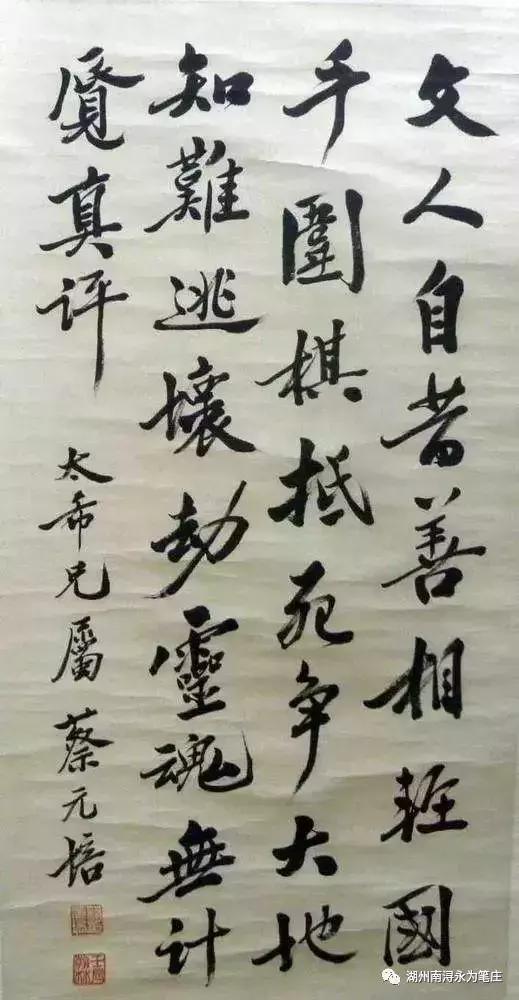 文人自昔善相輕國
手圍棋抵死争大地
知難逃壞劫靈魂無計
覓真评
太希兄屬蔡元培
湖州南浔永为笔庄